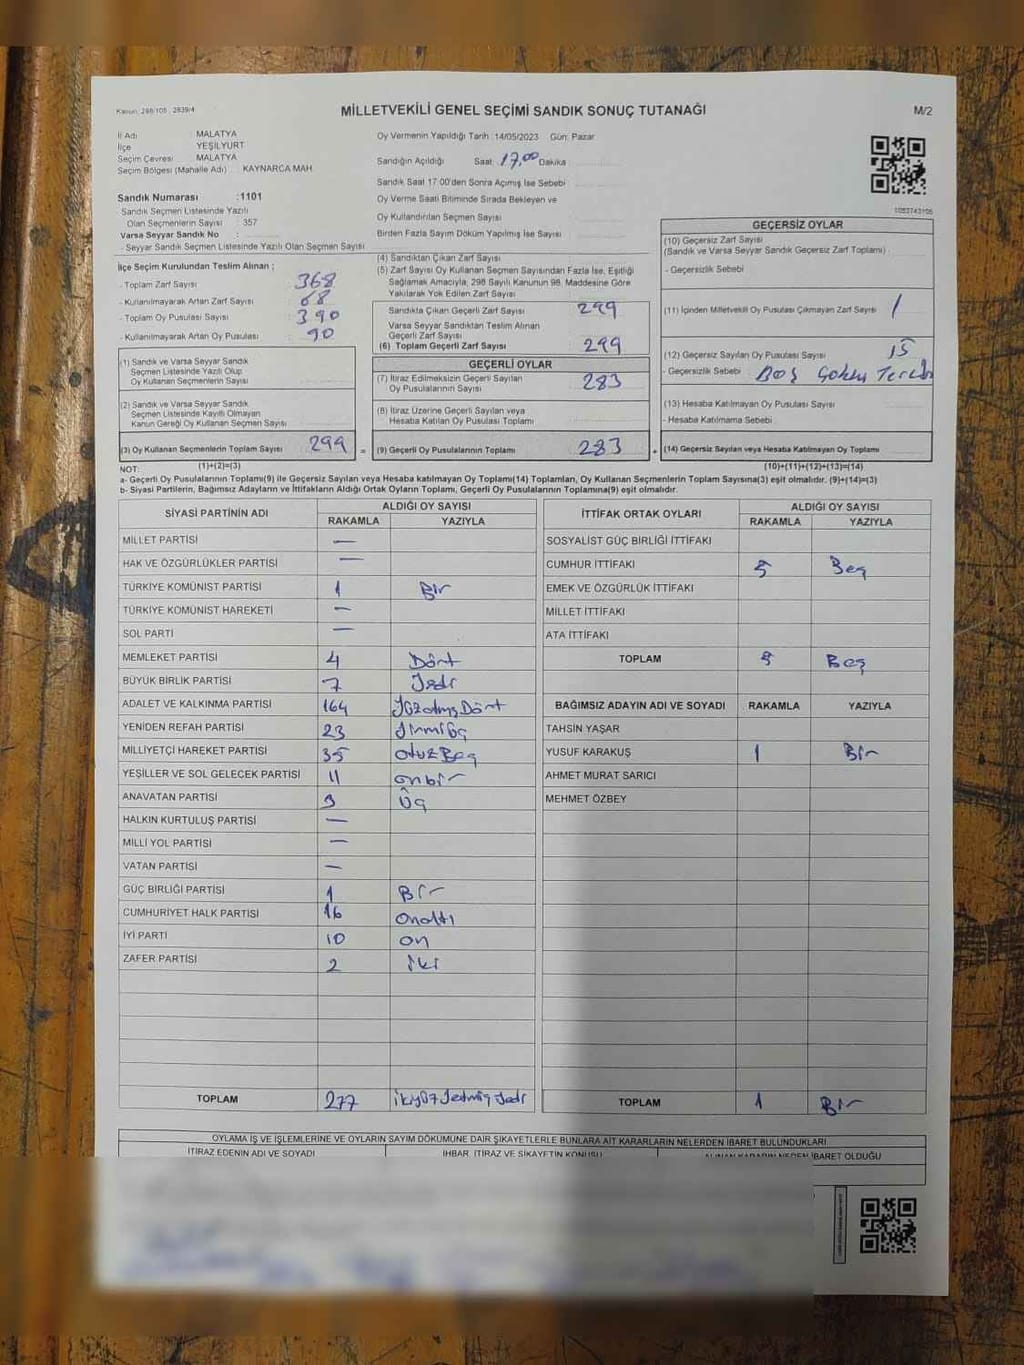 Kanun: 298/105, 2839/4
MİLLETVEKİLİ GENEL SEÇİMİ SANDIK SONUÇ TUTANAĞI
M/2
İl Adı : MALATYA
İlçe YEŞİLYURT
Seçim Çevresi MALATYA
Seçim Bölgesi (Mahalle Adı) KAYNARCA MAH
Sandık Numarası :1101
- Sandık Seçmen Listesinde Yazılı
Olan Seçmenlerin Sayısı : 357
Varsa Seyyar Sandık No :
- Seyyar Sandık Seçmen Listesinde Yazılı Olan Seçmen Sayısı
Oy Vermenin Yapıldığı Tarih :14/05/2023 Gün: Pazar
Sandığın Açıldığı Saat: 17,00 Dakika
Sandık Saat 17:00'den Sonra Açımış İse Sebebi
Oy Verme Saati Bitiminde Sırada Bekleyen ve
Oy Kullandırılan Seçmen Sayısı
Birden Fazla Sayım Döküm Yapılmış İse Sayısı
1053743105
İlçe Seçim Kurulundan Teslim Alınan ;
- Toplam Zarf Sayısı 368
- Kullanılmayarak Artan Zarf Sayısı 68
- Toplam Oy Pusulası Sayısı 390
- Kullanılmayarak Artan Oy Pusulası 90
(1) Sandık ve Varsa Seyyar Sandık
Seçmen Listesinde Yazılı Olup
Oy Kullanan Seçmenlerin Sayısı
(2) Sandık ve Varsa Seyyar Sandık
Seçmen Listesinde Kayıtlı Olmayan
Kanun Gereği Oy Kullanan Seçmen Sayısı
(3) Oy Kullanan Seçmenlerin Toplam Sayısı 299
(4) Sandıktan Çıkan Zarf Sayısı
(5) Zarf Sayısı Oy Kullanan Seçmen Sayısından Fazla İse, Eşitliği
Sağlamak Amacıyla, 298 Sayılı Kanunun 98. Maddesine Göre
Yakılarak Yok Edilen Zarf Sayısı
Sandıkta Çıkan Geçerli Zarf Sayısı 299
Varsa Seyyar Sandıktan Teslim Alınan
Geçerli Zarf Sayısı
(6) Toplam Geçerli Zarf Sayısı 299
GEÇERLİ OYLAR
(7) İtiraz Edilmeksizin Geçerli Sayılan
Oy Pusulalarının Sayısı 283
(8) İtiraz Üzerine Geçerli Sayılan veya
Hesaba Katılan Oy Pusulası Toplamı
= (9) Geçerli Oy Pusulalarının Toplamı 283
GEÇERSİZ OYLAR
(10) Geçersiz Zarf Sayısı
(Sandık ve Varsa Seyyar Sandık Geçersiz Zarf Toplamı)
- Geçersizlik Sebebi
(11) İçinden Milletvekili Oy Pusulası Çıkmayan Zarf Sayısı 1
(12) Geçersiz Sayılan Oy Pusulası Sayısı 15
- Geçersizlik Sebebi Boş
(13) Hesaba Katılmayan Oy Pusulası Sayısı
- Hesaba Katılmama Sebebi
+ (14) Geçersiz Sayılan veya Hesaba Katılmayan Oy Toplamı
NOT: (1)+(2)=(3) (10)+(11)+(12)+(13)=(14)
a- Geçerli Oy Pusulalarının Toplamı(9) ile Geçersiz Sayılan veya Hesaba katılmayan Oy Toplamı(14) Toplamları, Oy Kullanan Seçmenlerin Toplam Sayısına(3) eşit olmalıdır. (9)+(14)=(3)
b- Siyasi Partilerin, Bağımsız Adayların ve İttifakların Aldığı Ortak Oyların Toplamı, Geçerli Oy Pusulalarının Toplamına(9) eşit olmalıdır.
SİYASİ PARTİNİN ADI ALDIĞI OY SAYISI
RAKAMLA YAZIYLA
MİLLET PARTİSİ —
HAK VE ÖZGÜRLÜKLER PARTİSİ —
TÜRKİYE KOMÜNİST PARTİSİ 1 Bir
TÜRKİYE KOMÜNİST HAREKETİ —
SOL PARTİ —
MEMLEKET PARTİSİ 4 Dört
BÜYÜK BİRLİK PARTİSİ 7 Yedi
ADALET VE KALKINMA PARTİSİ 164 YüzatmışDört
YENİDEN REFAH PARTİSİ 23 Yirmiüç
MİLLİYETÇİ HAREKET PARTİSİ 35 otuzBeş
YEŞİLLER VE SOL GELECEK PARTİSİ 11 onbir
ANAVATAN PARTİSİ 3 Üç
HALKIN KURTULUŞ PARTİSİ —
MİLLİ YOL PARTİSİ —
VATAN PARTİSİ —
GÜÇ BİRLİĞİ PARTİSİ 1 Bir
CUMHURİYET HALK PARTİSİ 16 Onaltı
İYİ PARTİ 10 on
ZAFER PARTİSİ 2 iki
TOPLAM 277 ikiyüzYetmişYedi
İTTİFAK ORTAK OYLARI ALDIĞI OY SAYISI
RAKAMLA YAZIYLA
SOSYALİST GÜÇ BİRLİĞİ İTTİFAKI
CUMHUR İTTİFAKI 5 Beş
EMEK VE ÖZGÜRLÜK İTTİFAKI
MİLLET İTTİFAKI
ATA İTTİFAKI
TOPLAM 5 Beş
BAĞIMSIZ ADAYIN ADI VE SOYADI RAKAMLA YAZIYLA
TAHSİN YAŞAR
YUSUF KARAKUŞ 1 Bir
AHMET MURAT SARICI
MEHMET ÖZBEY
TOPLAM 1 Bir
OYLAMA İŞ VE İŞLEMLERİNE VE OYLARIN SAYIM DÖKÜMÜNE DAİR ŞİKAYETLERLE BUNLARA AİT KARARLARIN NELERDEN İBARET BULUNDUKLARI
İTİRAZ EDENİN ADI VE SOYADI İHBAR, İTİRAZ VE ŞİKAYETİN KONUSU ALINAN KARARIN NEDEN İBARET OLDUĞU